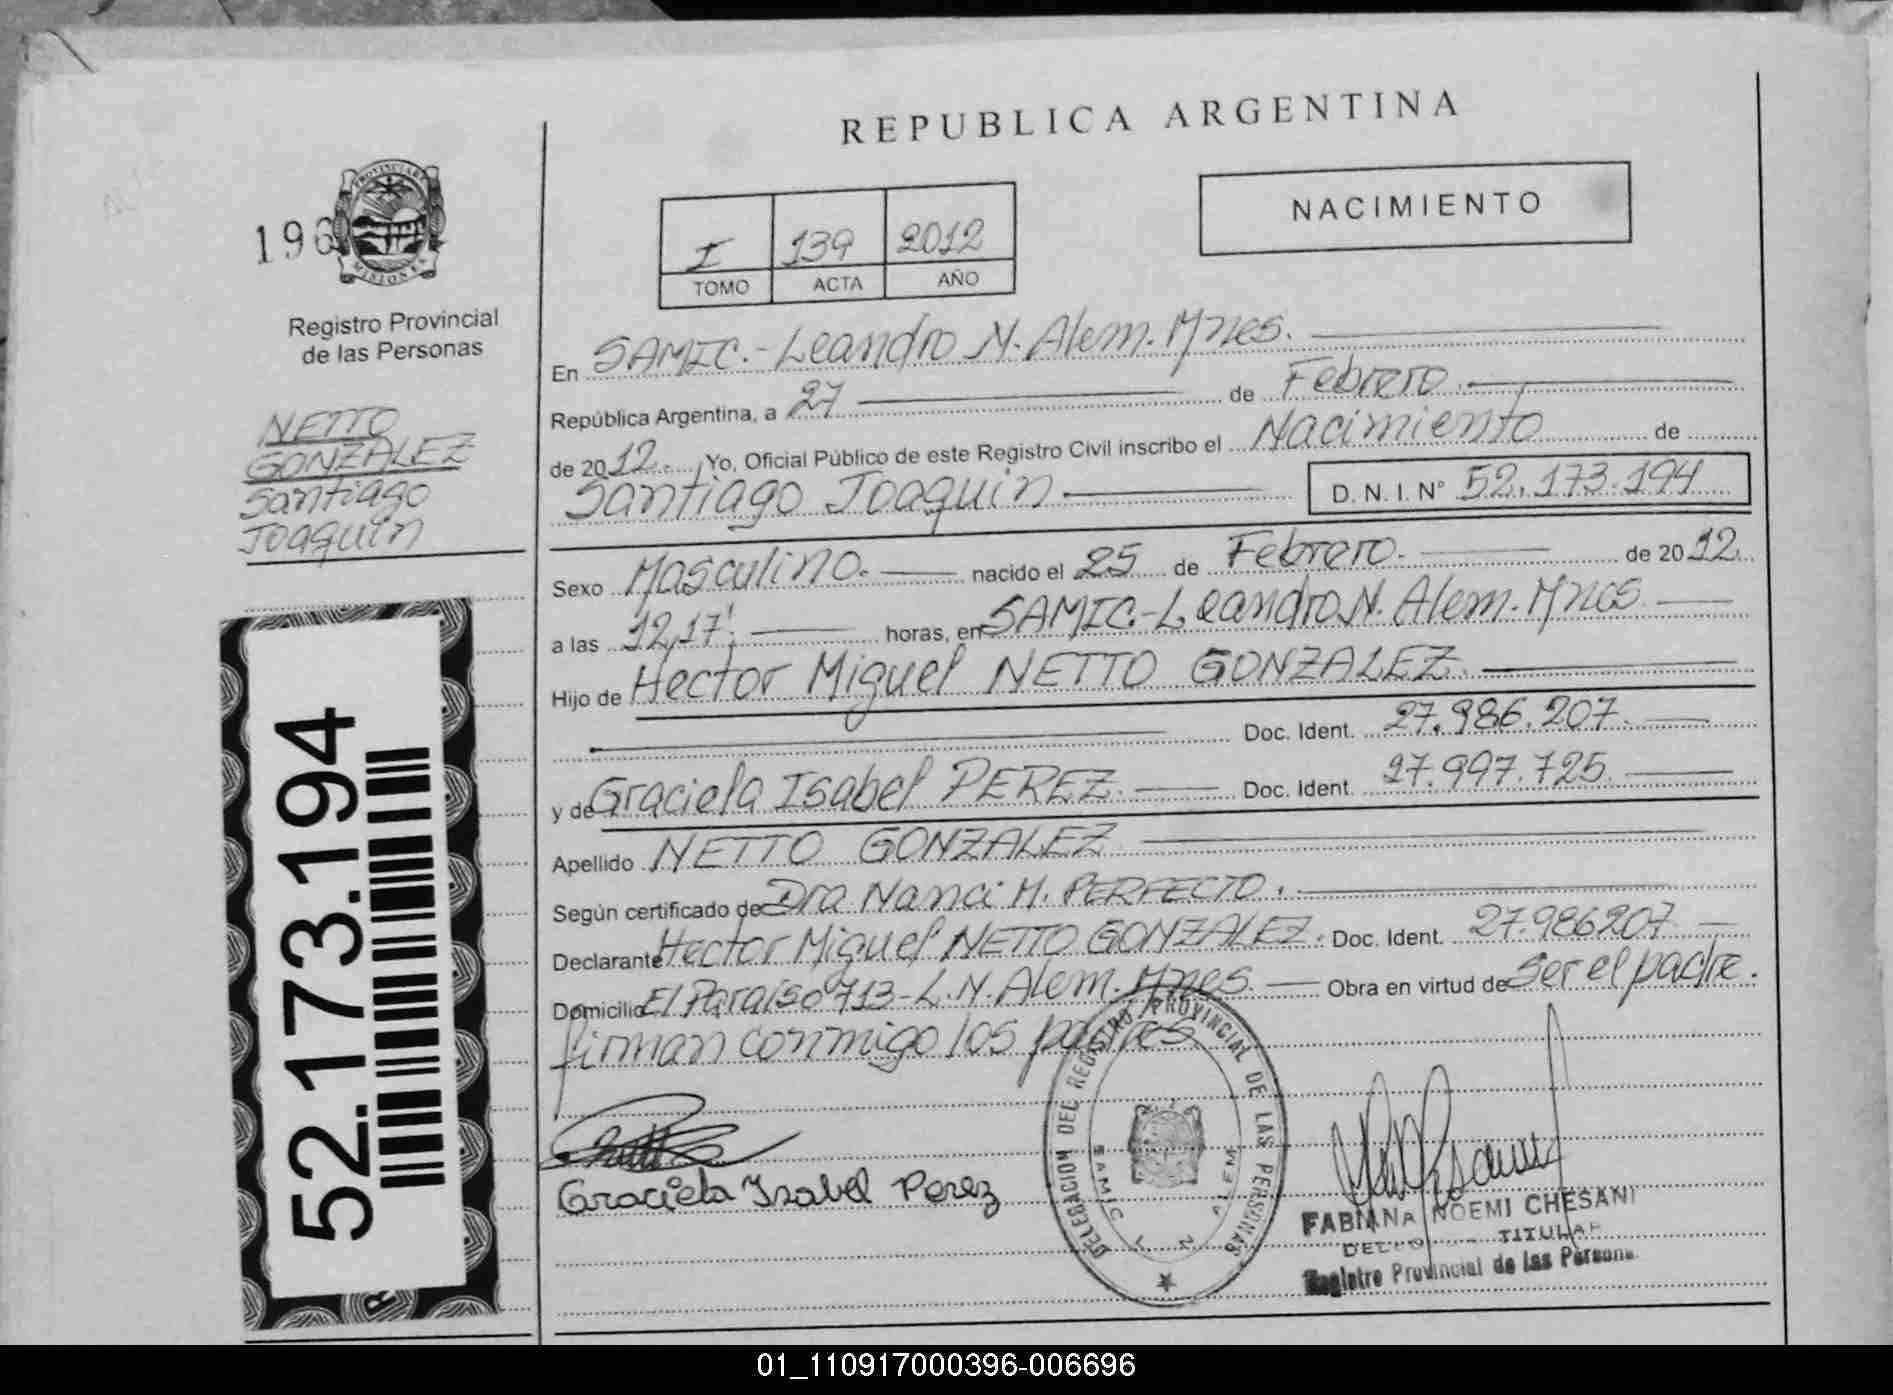 REPUBLICA ARGENTINA
NACIMIENTO
196
PROVINCIA DE
MISIONES
Registro Provincial
de las Personas
I 139 2012
TOMO ACTA AÑO
NETTO
GONZALEZ
Santiago
Joaquín
52.173.194
En SAMIC.-Leandro N. Alem. Mnes.
República Argentina, a 27 de Febrero
de 2012. Yo, Oficial Público de este Registro Civil inscribo el Nacimiento de
Santiago Joaquín D. N. I. N° 52.173.194
Sexo Masculino. nacido el 25 de Febrero. de 2012
a las 12,17'. horas, en SAMIC.-Leandro N. Alem. Mnes
Hijo de Hector Miguel NETTO GONZALEZ.
Doc. Ident. 27.986.207.
y de Graciela Isabel PEREZ. Doc. Ident. 27.997.725.
Apellido NETTO GONZALEZ
Según certificado de Dra Nanci M. PERFECTO.
Declarante Hector Miguel NETTO GONZALEZ. Doc. Ident. 27.986207
Domicilio El Paraíso 713-L.N. Alem. Mnes. Obra en virtud de ser el padre.
firman conmigo los padres
Graciela Isabel Perez
DELEGACION DEL REGISTRO PROVINCIAL DE LAS PERSONAS
SAMIC L N ALEM
FABIANA NOEMI CHESANI
TITULAR
Registro Provincial de las Persona
01_110917000396-006696